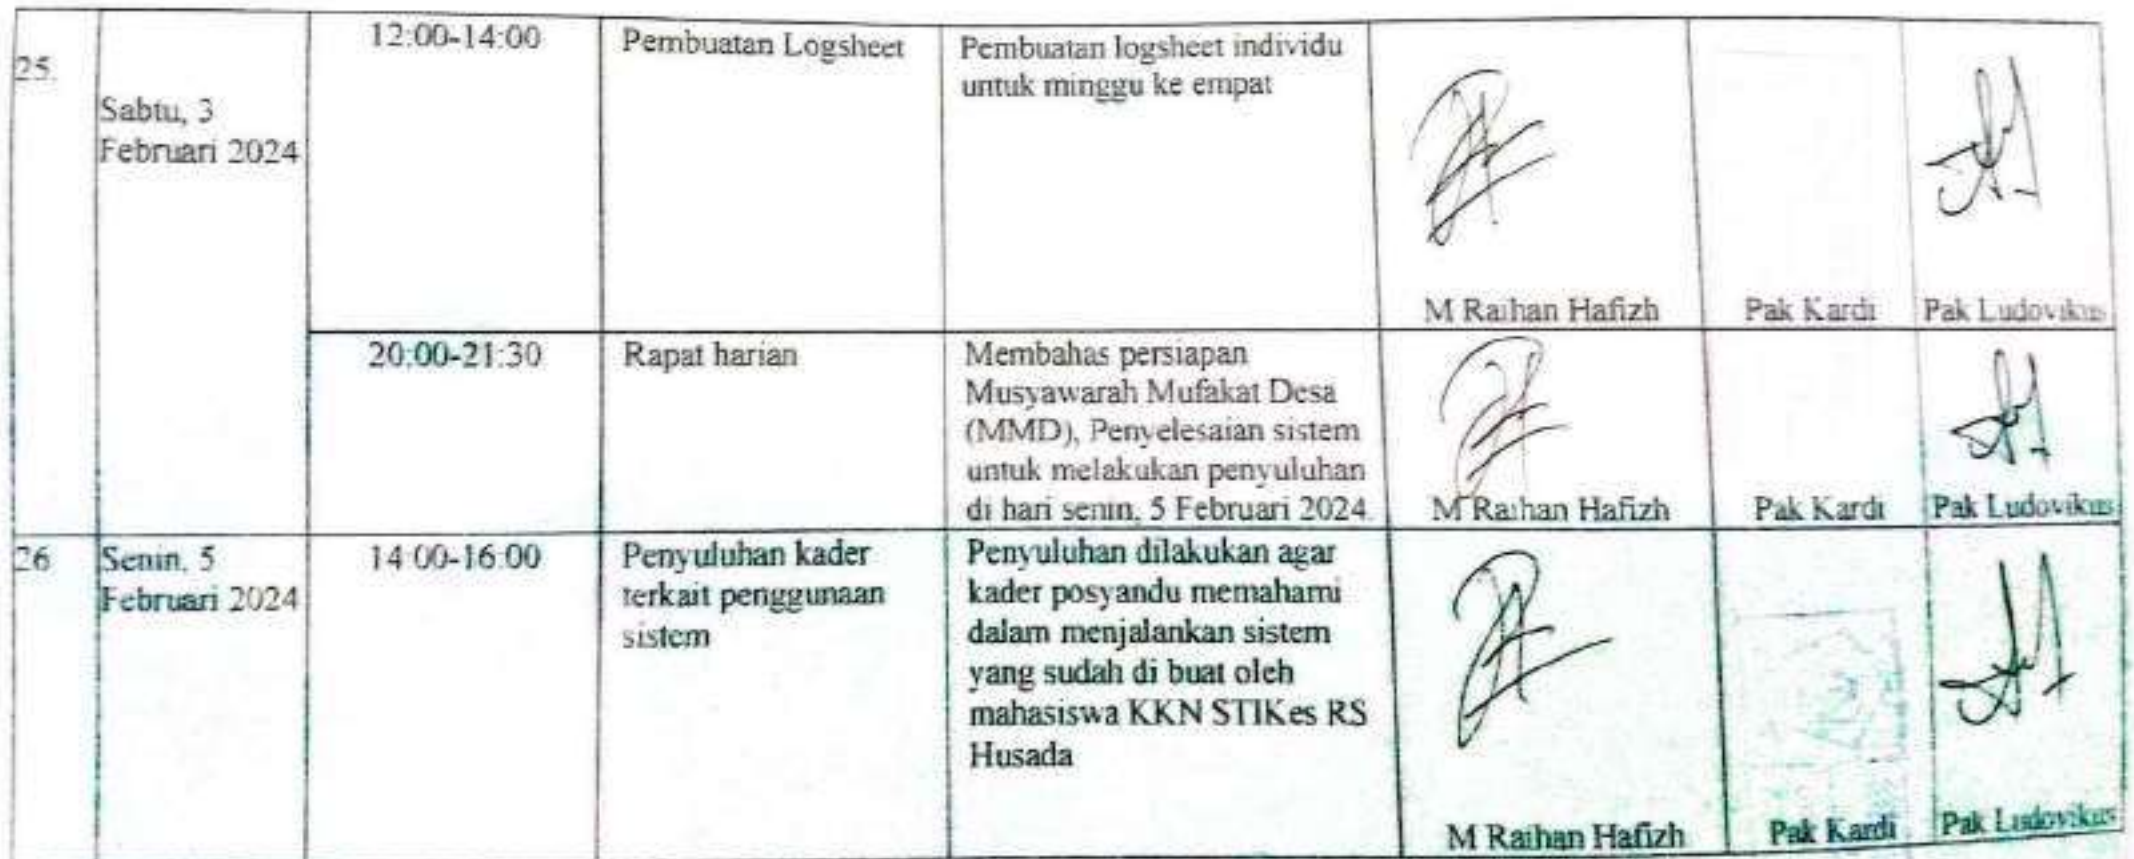 25.
Sabtu, 3
Februari 2024
12:00-14:00
Pembuatan Logsheet
Pembuatan logsheet individu
untuk minggu ke empat
M Raihan Hafizh
Pak Kardi
Pak Ludovikus
20:00-21:30
Rapat harian
Membahas persiapan
Musyawarah Mufakat Desa
(MMD), Penyelesaian sistem
untuk melakukan penyuluhan
di hari senin, 5 Februari 2024.
M Raihan Hafizh
Pak Kardi
Pak Ludovikus
26
Senin, 5
Februari 2024
14:00-16:00
Penyuluhan kader
terkait penggunaan
sistem
Penyuluhan dilakukan agar
kader posyandu memahami
dalam menjalankan sistem
yang sudah di buat oleh
mahasiswa KKN STIKes RS
Husada
M Raihan Hafizh
Pak Kardi
Pak Ludovikus